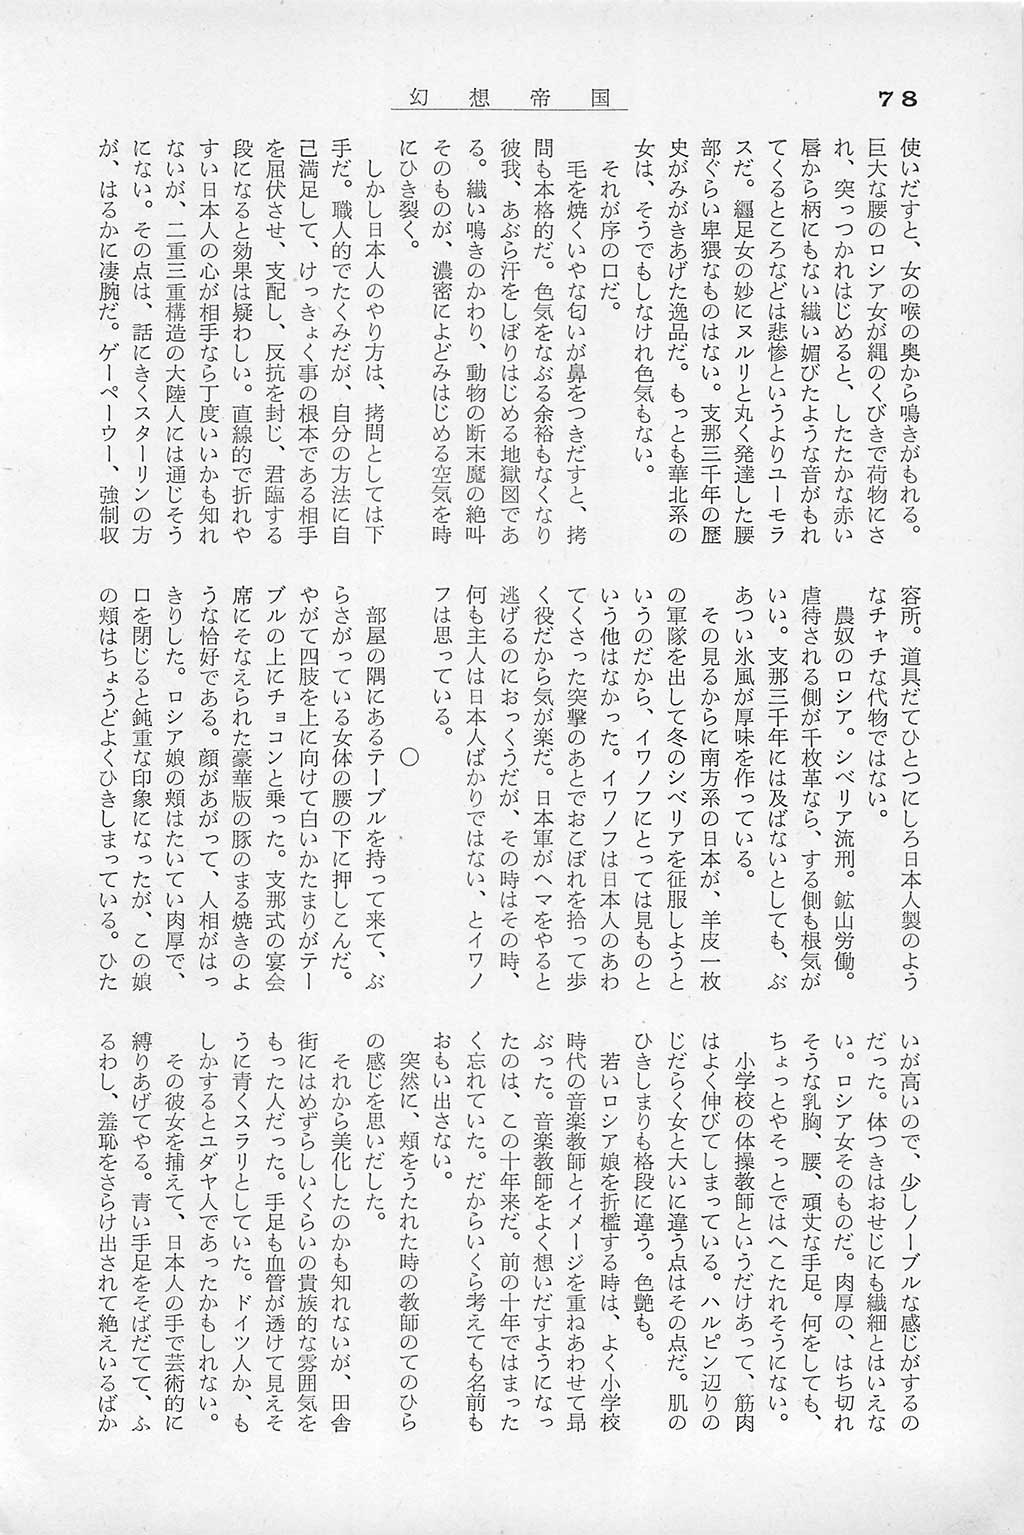 幻想帝国
78
使いだすと、女の喉の奥から鳴きがもれる。
巨大な腰のロシア女が縄のくびきで荷物にさ
れ、突っつかれはじめると、したたかな赤い
唇から柄にもない繊い媚びたような音がもれ
てくるところなどは悲惨というよりユーモラ
スだ。纒足女の妙にヌルリと丸く発達した腰
部ぐらい卑猥なものはない。支那三千年の歴
史がみがきあげた逸品だ。もっとも華北系の
女は、そうでもしなけれ色気もない。
それが序の口だ。
毛を焼くいやな匂いが鼻をつきだすと、拷
問も本格的だ。色気をなぶる余裕もなくなり
彼我、あぶら汗をしぼりはじめる地獄図であ
る。繊い鳴きのかわり、動物の断末魔の絶叫
そのものが、濃密によどみはじめる空気を時
にひき裂く。
しかし日本人のやり方は、拷問としては下
手だ。職人的でたくみだが、自分の方法に自
己満足して、けっきょく事の根本である相手
を屈伏させ、支配し、反抗を封じ、君臨する
段になると効果は疑わしい。直線的で折れや
すい日本人の心が相手なら丁度いいかも知れ
ないが、二重三重構造の大陸人には通じそう
にない。その点は、話にきくスターリンの方
が、はるかに凄腕だ。ゲーペーウー、強制収
容所。道具だてひとつにしろ日本人製のよう
なチャチな代物ではない。
農奴のロシア。シベリア流刑。鉱山労働。
虐待される側が千枚革なら、する側も根気が
いい。支那三千年には及ばないとしても、ぶ
あつい氷風が厚味を作っている。
その見るからに南方系の日本が、羊皮一枚
の軍隊を出して冬のシベリアを征服しようと
いうのだから、イワノフにとっては見ものと
いう他はなかった。イワノフは日本人のあわ
てくさった突撃のあとでおこぼれを拾って歩
く役だから気が楽だ。日本軍がヘマをやると
逃げるのにおっくうだが、その時はその時、
何も主人は日本人ばかりではない、とイワノ
フは思っている。
○
部屋の隅にあるテーブルを持って来て、ぶ
らさがっている女体の腰の下に押しこんだ。
やがて四肢を上に向けて白いかたまりがテー
ブルの上にチョコンと乗った。支那式の宴会
席にそなえられた豪華版の豚のまる焼きのよ
うな恰好である。顔があがって、人相がはっ
きりした。ロシア娘の頬はたいてい肉厚で、
口を閉じると鈍重な印象になったが、この娘
の頬はちょうどよくひきしまっている。ひた
いが高いので、少しノーブルな感じがするの
だった。体つきはおせじにも繊細とはいえな
い。ロシア女そのものだ。肉厚の、はち切れ
そうな乳胸、腰、頑丈な手足。何をしても、
ちょっとやそっとではへこたれそうにない。
小学校の体操教師というだけあって、筋肉
はよく伸びてしまっている。ハルピン辺りの
じだらく女と大いに違う点はその点だ。肌の
ひきしまりも格段に違う。色艶も。
若いロシア娘を折檻する時は、よく小学校
時代の音楽教師とイメージを重ねあわせて昂
ぶった。音楽教師をよく想いだすようになっ
たのは、この十年来だ。前の十年ではまった
く忘れていた。だからいくら考えても名前も
おもい出さない。
突然に、頬をうたれた時の教師のてのひら
の感じを思いだした。
それから美化したのかも知れないが、田舎
街にはめずらしいくらいの貴族的な雰囲気を
もった人だった。手足も血管が透けて見えそ
うに青くスラリとしていた。ドイツ人か、も
しかするとユダヤ人であったかもしれない。
その彼女を捕えて、日本人の手で芸術的に
縛りあげてやる。青い手足をそばだてて、ふ
るわし、羞恥をさらけ出されて絶えいるばか